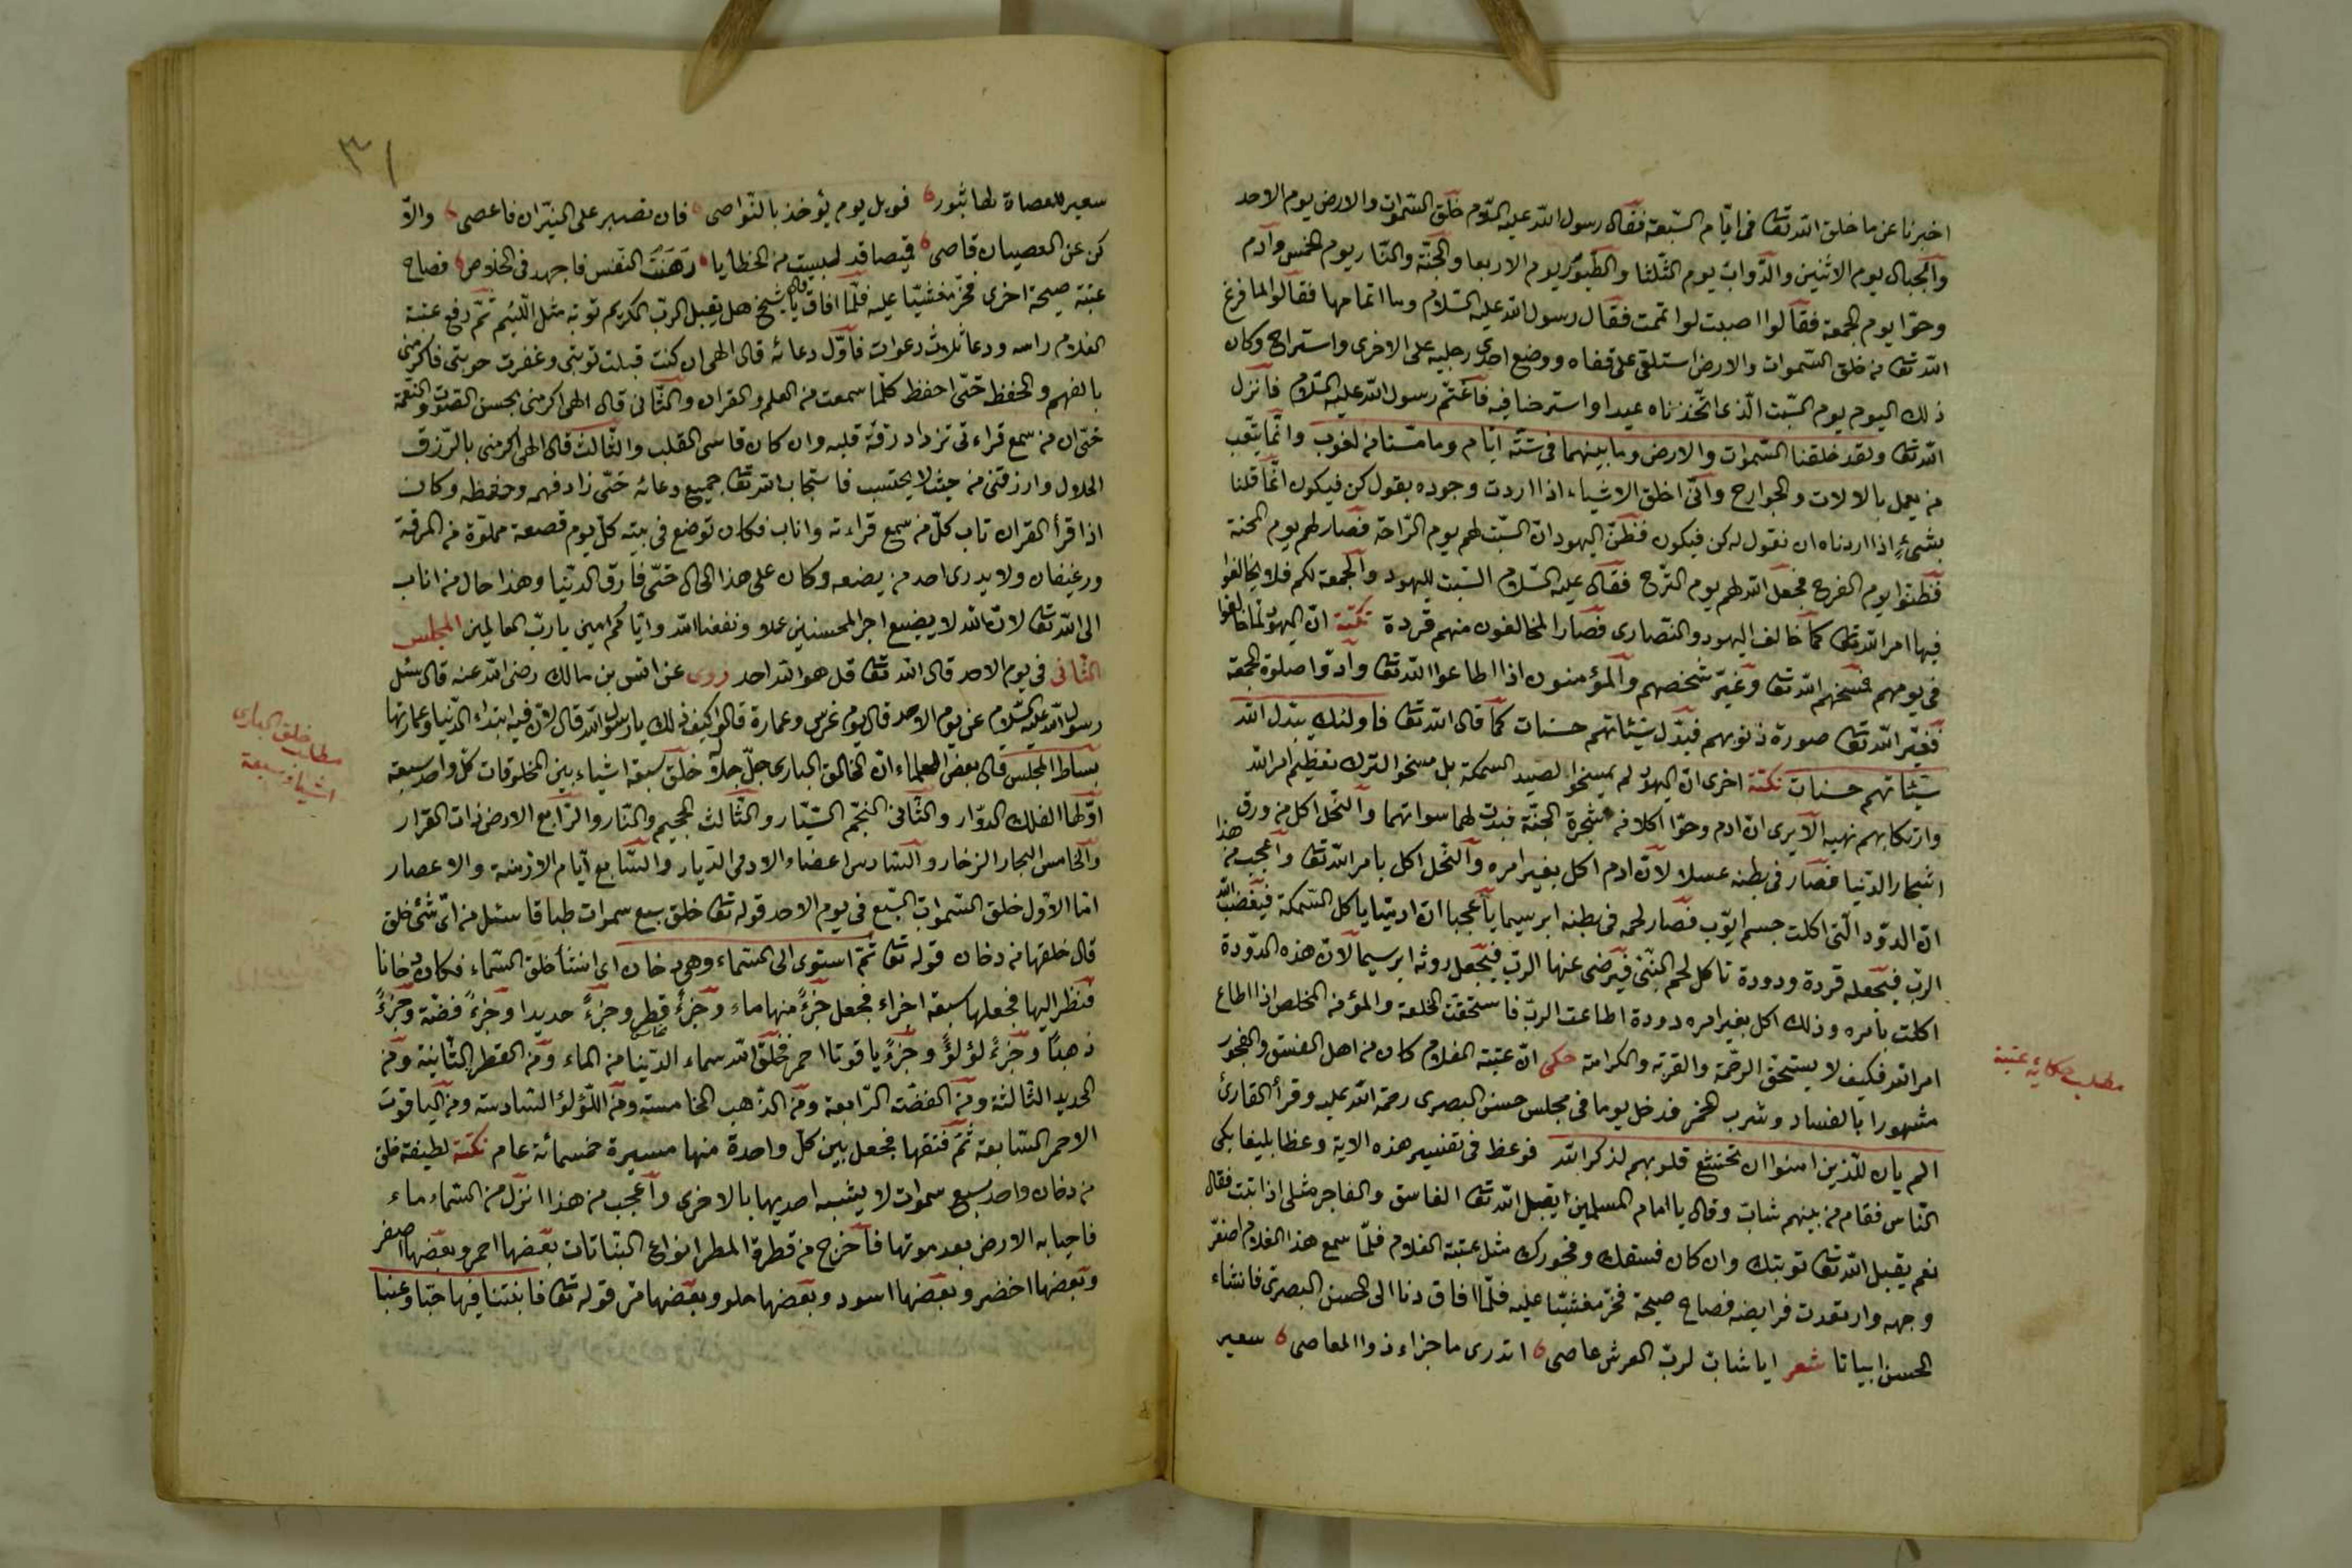 اخبرنا عن ما خلق الله تعا فى ايّام السّبعة فقال رسول الله عليه السّلام خلق السّموات والارض يوم الاحد
والجبال يوم الاثنين والدّوابّ يوم الثّلثا والطّيور يوم الاربعا والجنّة والنّار يوم الخمس وآدم
وحوّا يوم الجمعة فقالوا اصبت لو اتممت فقال رسول الله عليه السّلام وما اتمامها فقالوا لما فرغ
الله تعا من خلق السّموات والارض استلقى على قفاه ووضع احدى رجليه على الاخرى واستراح وكان
ذلك اليوم يوم السّبت الّذى اتّخذناه عيدا واسترحنا فيه فاغتمّ رسول الله عليه السّلام فانزل
الله تعا ولقد خلقنا السّموات والارض وما بينهما فى ستّة ايّام وما مسّنا من لغوب وانّما يتعب
من يعمل بالالات والجوارح وانّى اخلق الاشياء اذا اردت وجوده بقول كن فيكون انّما قلنا
بشىءٍ اذا اردناه ان نقول له كن فيكون فظنّ اليهود انّ السّبت لهم يوم الرّاحة فصار لهم يوم المحنة
فظنّوا يوم الفرح فجعل الله لهم يوم التّرح فقال عليه السّلام السّبت لليهود والجمعة لكم فلا تخالفوا
فيها امر الله تعا كما خالف اليهود والنّصارى فصار المخالفون منهم قردة نكتة انّ اليهود لمّا خالفوا
فى يومهم مسخهم الله تعا وغيّر شخصهم والمؤمنون اذا اطاعوا الله تعا وادّوا صلوة الجمعة
فغيّر الله تعا صورة ذنوبهم فبدّل سيّئاتهم حسنات كما قال الله تعا فاولئك يبدّل الله
سيّئاتهم حسنات نكتة اخرى انّ اليهود لم يمسخوا لصيد السمكة بل مسخوا لترك تعظيم امر الله
وارتكابهم نهيه الا يرى انّ ادم وحوّا اكلا من شجرة الجنّة فبدت لهما سواتهما والنّحل اكل من ورق
اشجار الدّنيا فصار فى بطنه عسلا لانّ ادم اكل بغير امره والنّحل اكل بامر الله تعا واعجب من هذا
انّ الدوّد الّتى اكلت جسم ايّوب فصار لحمه فى بطنه ابرسيما يا عجبا انّ ادميّا ياكل السّمكة فيغضب الله
الربّ فيجعله قردة ودودة تاكل لحم النّبى فيرضى عنها الربّ فيجعل روثه ابرسيما لانّ هذه الدّودة
اكلت بامره وذلك اكل بغير امره دودة اطاعت الربّ فاستحقّت الخلعة والمؤمن المخلص اذا اطاع
امر الله فكيف لا يستحقّ الرحمة والقربة والكرامة حكى انّ عتبة الغلام كان من اهل الفسق والفجور
مشهورا بالفساد وشرب الخمر فدخل يوما فى مجلس حسن البصرى رحمة الله عليه وقرأ القارئ
الم يان للّذين امنوا ان تخشع قلوبهم لذكر الله فوعظ فى تفسير هذه الاية وعظا بليغا بكى
النّاس فقام من بينهم شابّ وقال يا امام المسلمين ايقبل الله تعا الفاسق والفاجر مثلى اذا تبت فقال
نعم يقبل الله تعا توبتك وان كان فسقك وفجورك مثل عتبة الغلام فلمّا سمع هذا الغلام اصفرّ
وجهه وارتعدت فرايضه فصاح صيحة فخرّ مغشيّا عليه فلمّا افاق دنا الى الحسن البصرى فانشاء
الحسن ابياتا شعر ايا شابّ لربّ العرش عاصى اتدرى ما جزاء ذوا المعاصى سعير
مطلب حكاية عتبة
٣١
سعير للعصاة لها ثبور فويل يوم يؤخذ بالنّواصى فان تصبر على النيّران فاعصى والاّ
كن عن العصيان قاصى فيما قد كسبت من الخطايا رَهَنْتَ النّفس فاجهد فى الخلاص فصاح
عتبة صيحة اخرى فخرّ مغشيّا عليه فلمّا افاق قال يا شيخ هل يقبل الربّ الكريم توبة مثل اللّئيم ثمّ رفع عتبة
الغلام راسه ودعا ثلاث دعوات فاوّل دعائه قال الهى ان كنت قبلت توبتى وغفرت حوبتى فاكرمنى
بالفهم والحفظ حتّى احفظ كلّما سمعت من العلم والقران والثّانى قال الهى اكرمنى بحسن الصّوت والنّغمة
حتّى ان من سمع قراءتى تزداد رقّة قلبه وان كان قاسى القلب والثّالث قال الهى اكرمنى بالرّزق
الحلال وارزقنى من حيث لا يحتسب فاستجاب الله تعا جميع دعائه حتّى زاد فهمه وحفظه وكان
اذا قرأ القران تاب كلّ من سمع قراءته واناب فكان توضع فى بيته كلّ يوم قصعة مملوّة من المرقة
ورغيفان ولا يدرى احد من يضعه وكان على هذا الحال حتّى فارق الدّنيا وهذا حال من اناب
الى الله تعا لانّ الله لا يضيع اجر المحسنين عملا ونفعنا الله وايّاكم امين يا ربّ العالمين المجلس
الثّانى فى يوم الاحد قال الله تعا قل هو الله احد روى عن انس بن مالك رضى الله عنه قال سئل
رسول الله عليه السّلام عن يوم الاحد قال يوم غرس وعمارة قالوا كيف ذلك يا رسول الله قال لانّ فيه ابتداء الدّنيا وعمارتها
بساط المجلس قال بعض العلماء انّ الخالق البارى جلّ جلاله خلق سبعة اشياء بين المخلوقات كلّ واحد سبعة
اوّلها الفلك الدوّار والثّانى النّجم السّيّار والثّالث الجحيم والنّار والرّابع الارض ذات القرار
والخامس البحار الزخار والسّادس اعضاء الادمى الدّيار والسّابع ايّام الازمنة والاعصار
امّا الاوّل خلق السّموات السّبع فى يوم الاحد قوله تعا خلق سبع سموات طباقا سئل من اىّ شئ خلق
قال خلقها من دخان قوله تعا ثمّ استوى الى السّماء وهى دخان اى انشأ خلق السّماء فكان دخانا
فنظر اليها فجعلها سبعة اجزاء فجعل جزءً منها ماء وجزءً قطر وجزءً حديدا وجزءً فضّة وجزءً
ذهبًا وجزءً لؤلؤً وجزءً ياقوتا احمر فخلق الله سماء الدّنيا من الماء ومن القطر الثّانية ومن
الحديد الثّالثة ومن الفضّة الرّابعة ومن الذّهب الخامسة ومن اللّؤلؤ السّادسة ومن الياقوت
الاحمر السّابعة ثمّ فتقها فجعل بين كلّ واحدة منها مسيرة خمسمائة عام نكتة لطيفة خلق
من دخان واحد سبع سموات لا يشبه احديها بالاخرى واعجب من هذا انزل من السّماء ماء
فاحيا به الارض بعد موتها فاخرج من قطرة المطر انواع النّباتات بعضها احمر وبعضها اصفر
وبعضها اخضر وبعضها اسود وبعضها حلو وبعضها مرّ قوله تعا فانبتنا فيها حبّا وعنبا
مطلب خلق البارى
اشياء سبعة